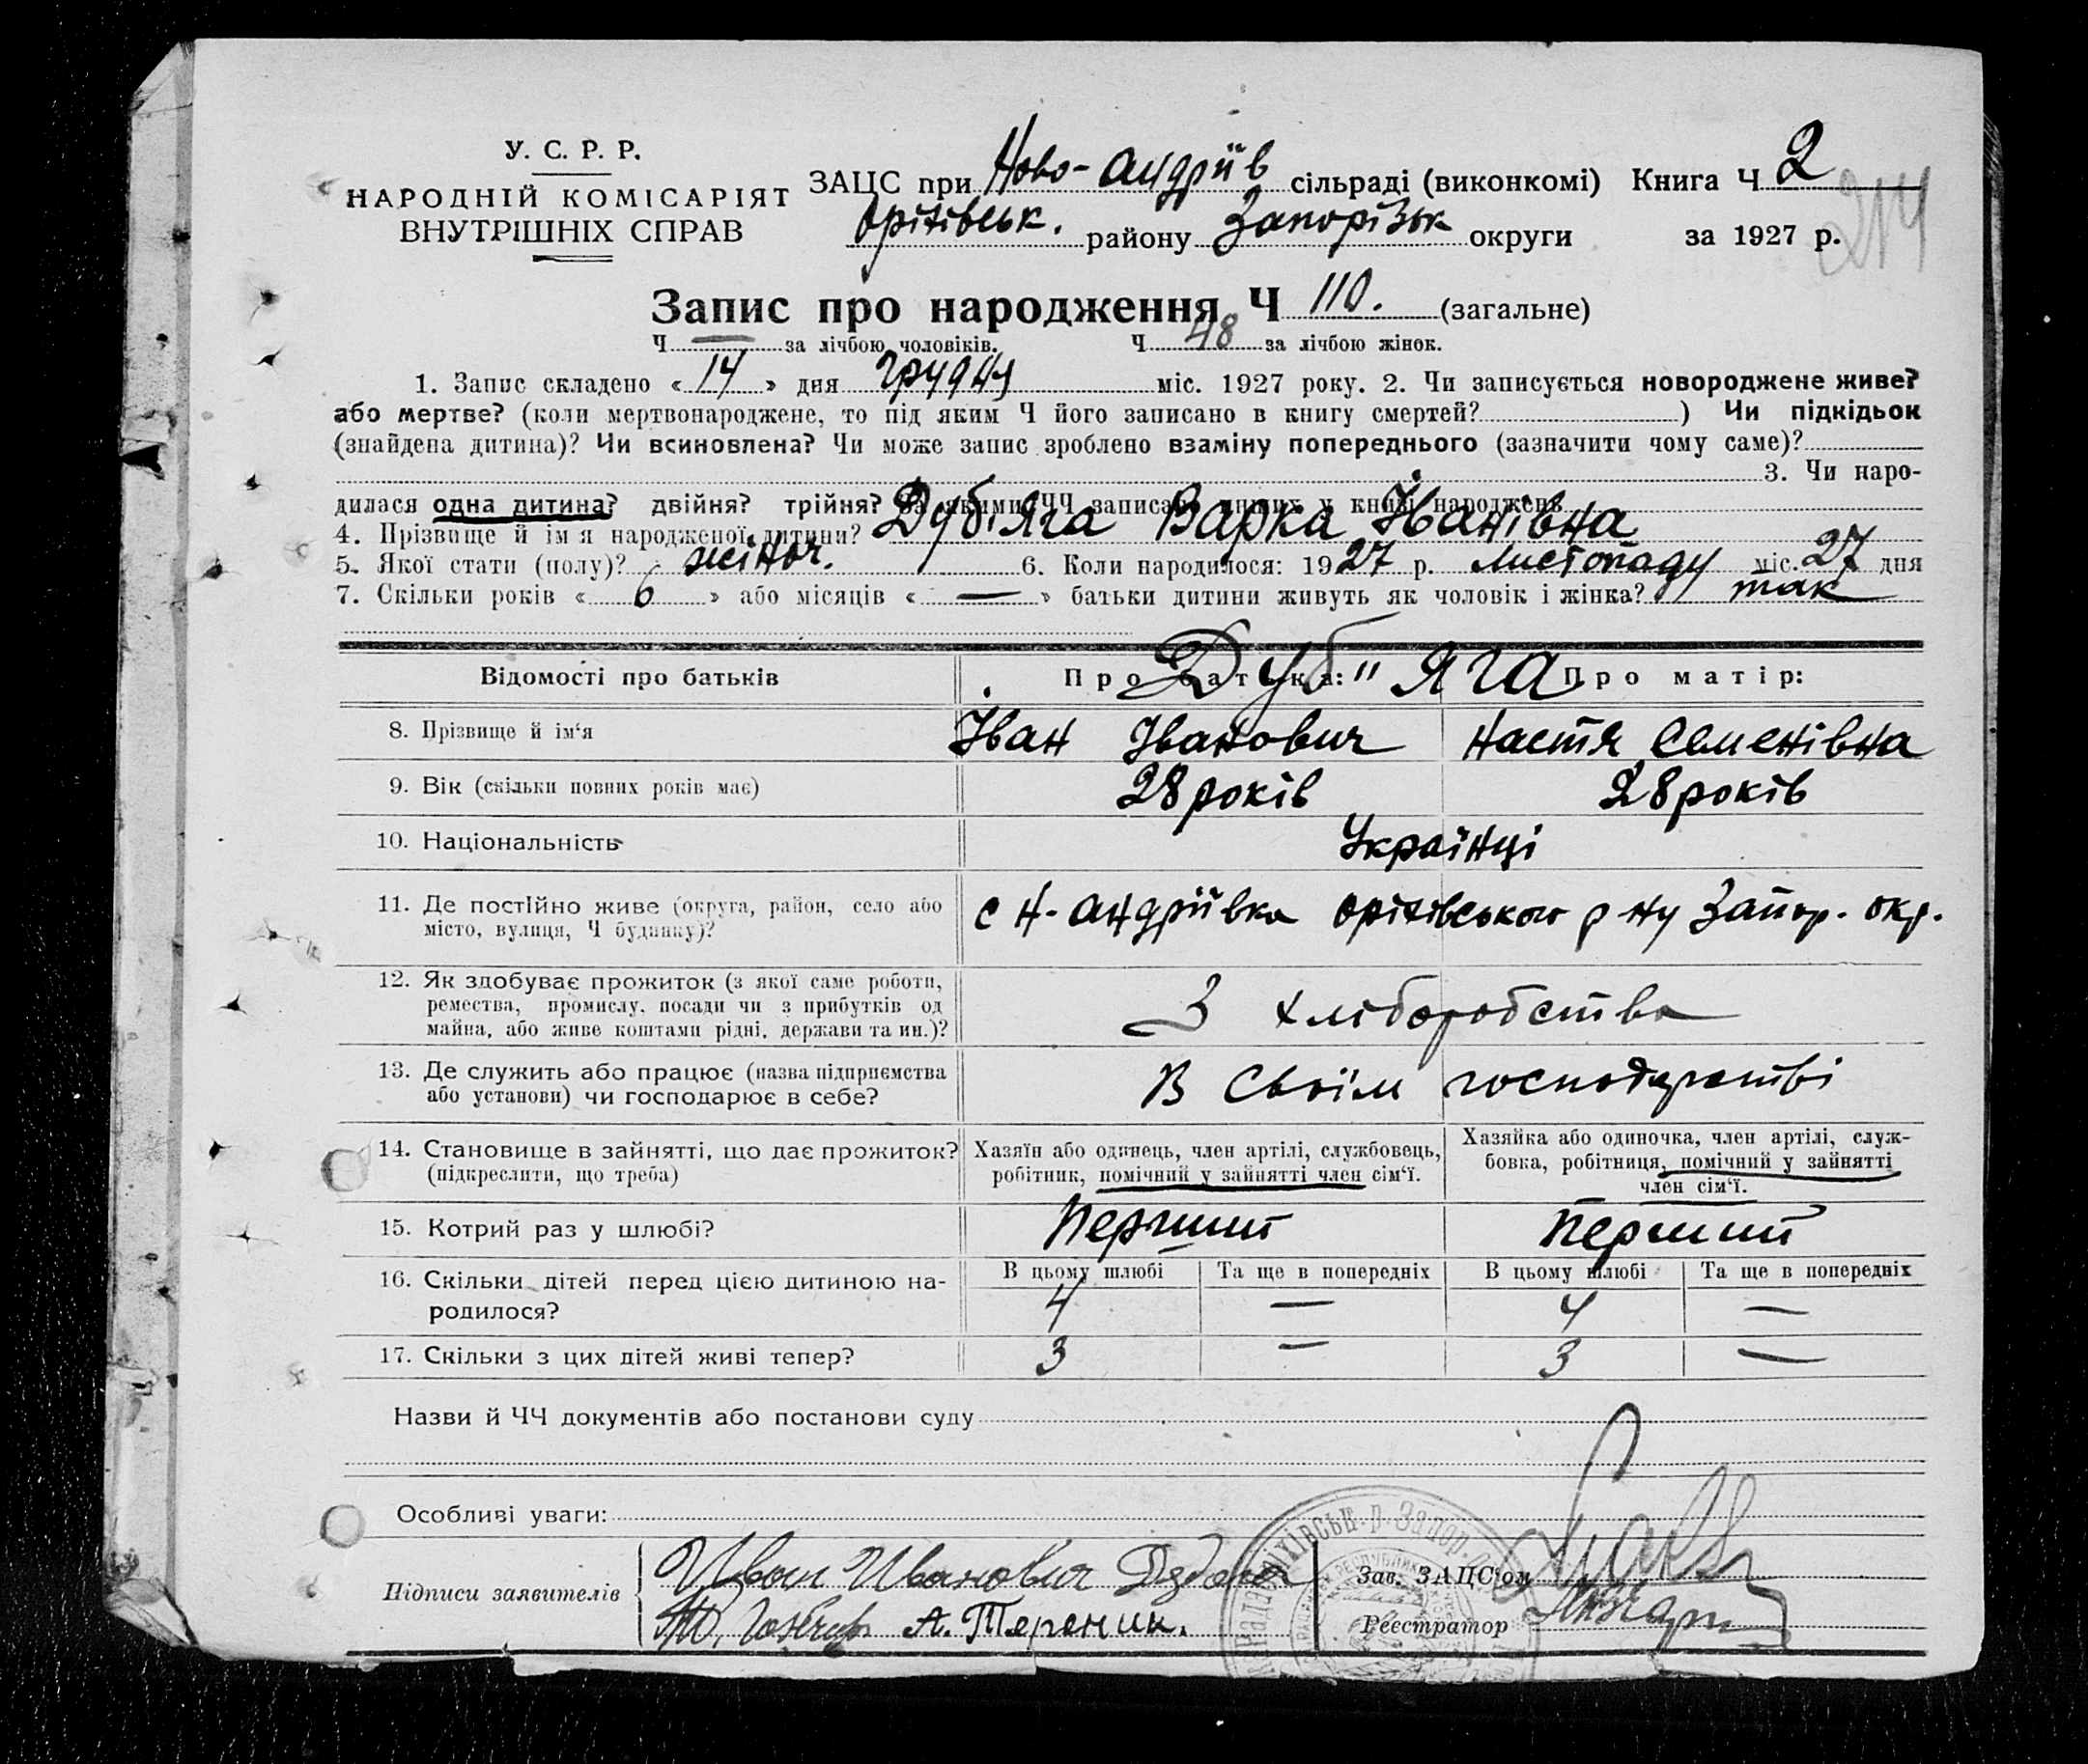 У. С. Р. Р.
НАРОДНІЙ КОМІСАРІЯТ
ВНУТРІШНІХ СПРАВ
ЗАЦС при Ново-Андріїв сільраді (виконкомі) Книга Ч 2
Оріхівськ. району Запорізьк округи за 1927 р.
214
Запис про народження Ч 110. (загальне)
Ч — за лічбою чоловіків. Ч 48 за лічбою жінок.
1. Запис складено « 14 » дня грудня міс. 1927 року. 2. Чи записується новороджене живе?
або мертве? (коли мертвонароджене, то під яким Ч його записано в книгу смертей? ) Чи підкідьок
(знайдена дитина)? Чи всиновлена? Чи може запис зроблено взаміну попереднього (зазначити чому саме)?
3. Чи наро-
дилася одна дитина? двійня? трійня? за якими ЧЧ записано инших у книзі народжень
4. Прізвище й ім'я народженої дитини? Дуб'яга Варка Іванівна
5. Якої стати (полу)? жіноч. 6. Коли народилося: 1927 р. Листопаду міс. 27 дня
7. Скільки років « 6 » або місяців « — » батьки дитини живуть як чоловік і жінка? так
Відомості про батьків Про батька: Про матір:
Дуб"яга
8. Прізвище й ім'я Іван Іванович Настя Семенівна
9. Вік (скільки повних років має) 28 років 28 років
10. Національність Українці
11. Де постійно живе (округа, район, село або
місто, вулиця, Ч будинку)? с Н-Андріївка Оріхівського р ну Запор. окр.
12. Як здобуває прожиток (з якої саме роботи,
ремества, промислу, посади чи з прибутків од
майна, або живе коштами рідні, держави та ин.)? З хліборобства
13. Де служить або працює (назва підприємства
або установи) чи господарює в себе? В своїм господарстві
14. Становище в зайнятті, що дає прожиток?
(підкреслити, що треба)
Хазяїн або одинець, член артілі, службовець,
робітник, помічний у зайнятті член сім'ї.
Хазяйка або одиночка, член артілі, служ-
бовка, робітниця, помічний у зайнятті
член сім'ї.
15. Котрий раз у шлюбі? Перший Перший
16. Скільки дітей перед цією дитиною на-
родилося?
В цьому шлюбі Та ще в попередніх В цьому шлюбі Та ще в попередніх
4 — 4 —
17. Скільки з цих дітей живі тепер? 3 — 3 —
Назви й ЧЧ документів або постанови суду
Особливі уваги:
Підписи заявителів
Иван Иванович
А. Тереник.
Зав. ЗАЦС'ом
Реєстратор